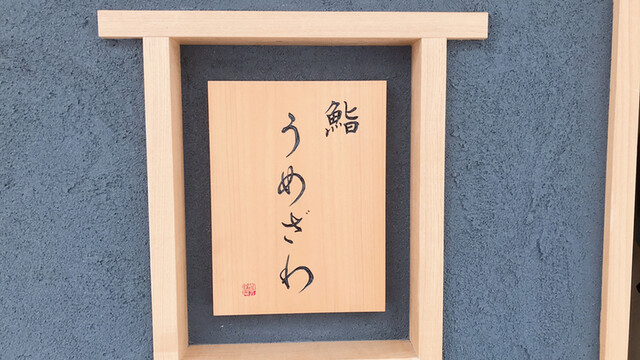 鮨
うめざわ